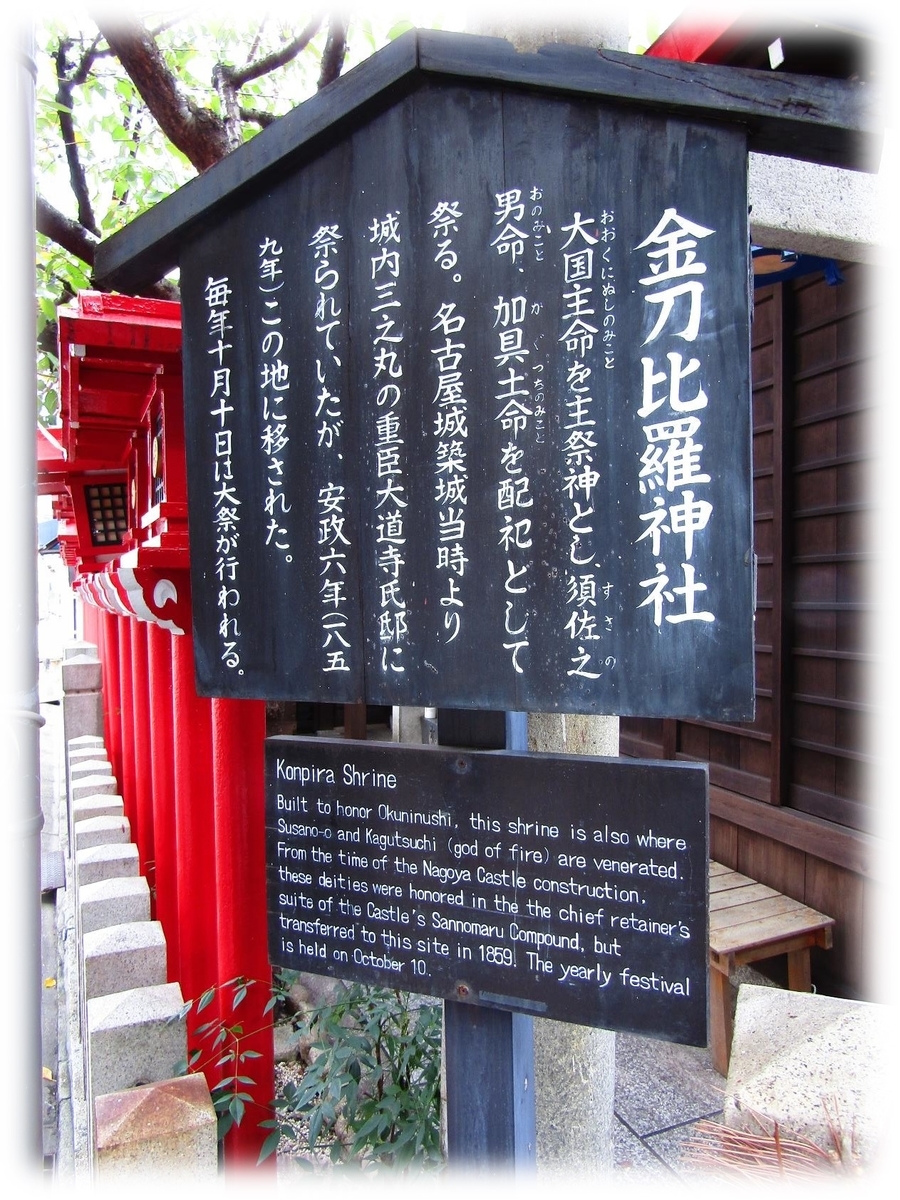 金刀比羅神社
大国主命を主祭神とし、須佐之
おおくにぬしのみこと
すさの
男命、加具土命を配祀として
おのみこと
かぐつちのみこと
祭る。名古屋城築城当時より
城内三之丸の重臣大道寺氏邸に
祭られていたが、安政六年(一八五
九年)この地に移された。
毎年十月十日は大祭が行われる。
Konpira Shrine
Built to honor Okuninushi, this shrine is also where
Susano-o and Kagutsuchi (god of fire) are venerated.
From the time of the Nagoya Castle construction,
these deities were honored in the the chief retainer's
suite of the Castle's Sannomaru Compound, but
transferred to this site in 1859. The yearly festival
is held on October 10.